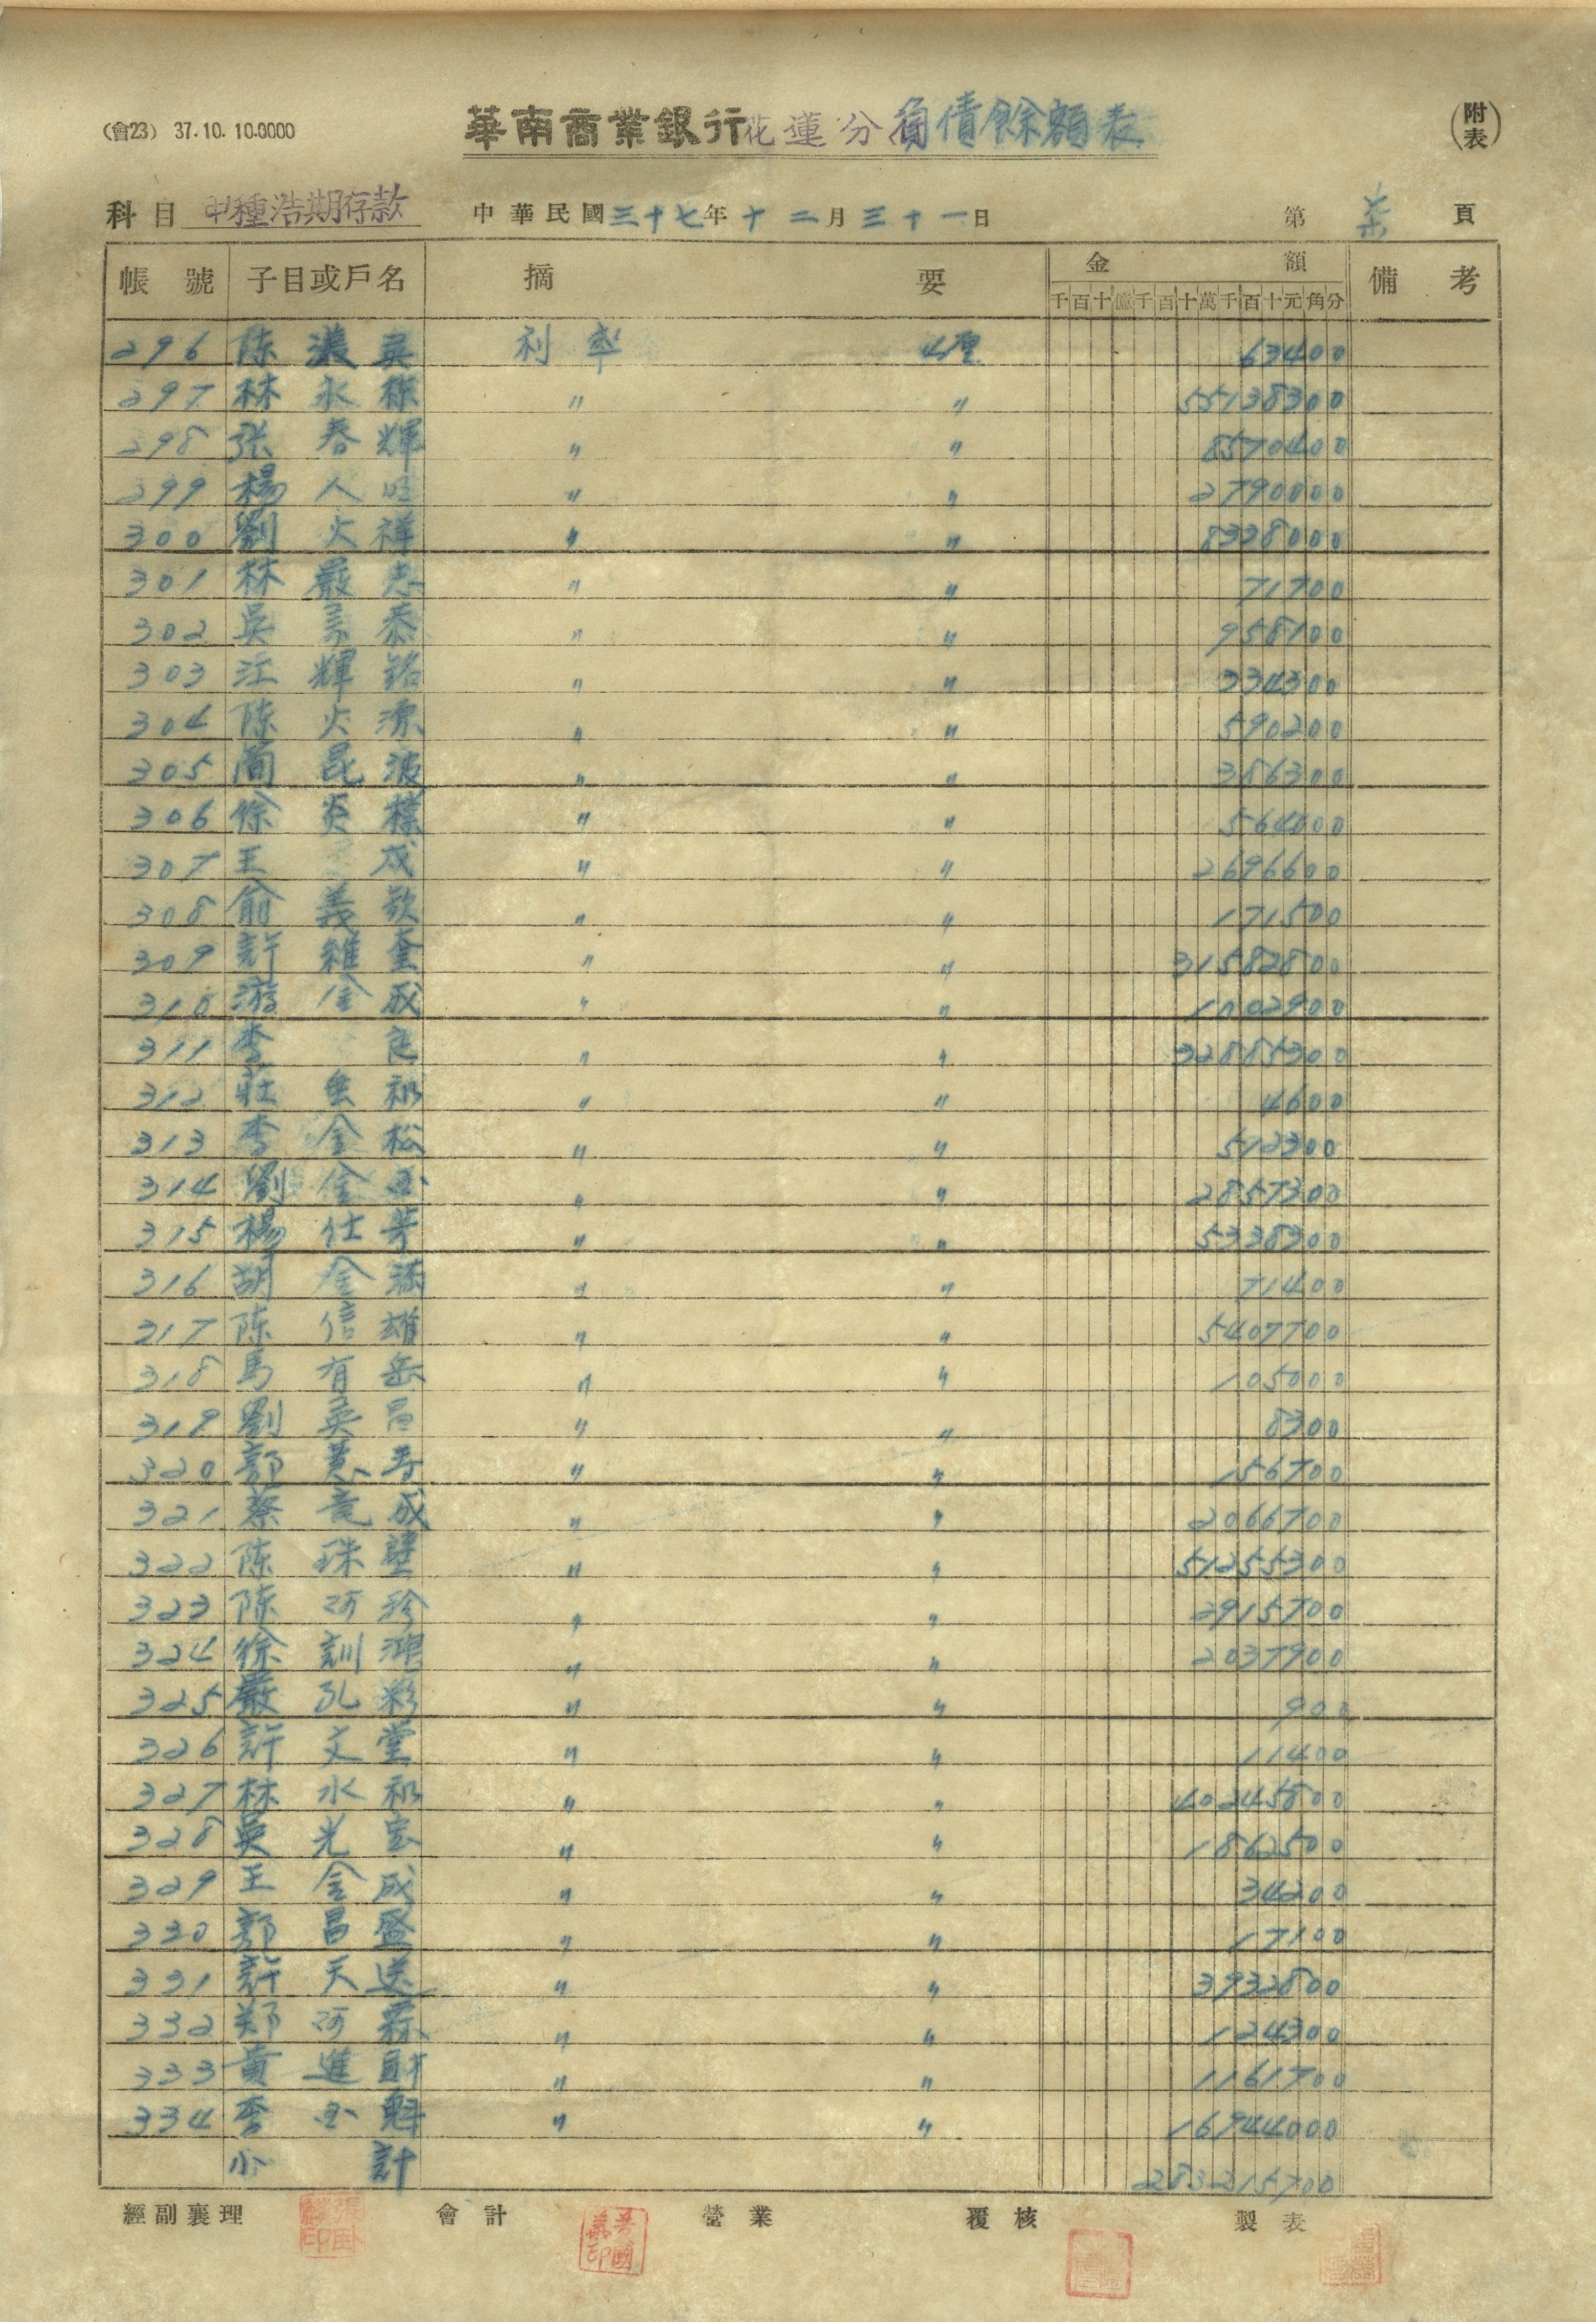 (會23) 37.10.10.0000 華南商業銀行花蓮分負債餘額表 (附表)
科目 甲種活期存款 中華民國三十七年十二月三十一日 第 柒 頁
帳號 子目或戶名 摘要 金額 備考
千百十億千百十萬千百十元角分
296 陳 英 利率 厘 63400
297 林永 〃 〃 55138300
298 張春輝 〃 〃 8570400
299 楊人旺 〃 〃 2790000
300 劉火祥 〃 〃 8328000
301 林嚴志 〃 〃 71700
302 吳 恭 〃 〃 958100
303 江輝銘 〃 〃 334300
304 陳火源 〃 〃 590200
305 簡昆波 〃 〃 386300
306 徐炎樸 〃 〃 564000
307 王成 〃 〃 2696600
308 俞義欽 〃 〃 171500
309 許 奎 〃 〃 31582800
310 游金成 〃 〃 1002900
311 李良 〃 〃 32885300
312 莊 〃 〃 4600
313 李金松 〃 〃 512300
314 劉金玉 〃 〃 2857300
315 楊仕芳 〃 〃 5338300
316 胡金 〃 〃 71400
317 陳信雄 〃 〃 5407700
318 馬有岳 〃 〃 105000
319 劉英昌 〃 〃 8300
320 郭 〃 〃 156700
321 蔡 成 〃 〃 2066700
322 陳珠 〃 〃 51255300
323 陳阿珍 〃 〃 2915700
324 徐訓 〃 〃 2037900
325 嚴孔彩 〃 〃 900
326 許文堂 〃 〃 11400
327 林水 〃 〃 40245800
328 吳光 〃 〃 1862500
329 王金成 〃 〃 34200
330 郭昌盛 〃 〃 17100
331 許天送 〃 〃 3932800
332 鄭阿 〃 〃 124300
333 黃進財 〃 〃 1161700
334 李玉魁 〃 〃 16944000
小計 283215700
經副襄理 會計 營業 覆核 製表